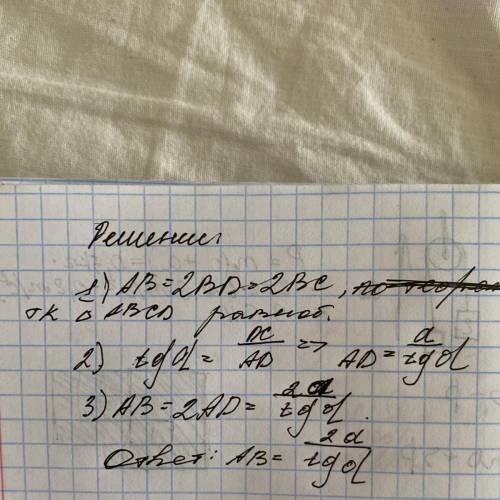 Решение:
1) AB = 2BD = 2BC,
тк Δ ABCD равноб.
2) tg α = DC/AD => AD = d/tg α
3) AB = 2AD = 2d/tg α.
Ответ: AB = 2d/tg α